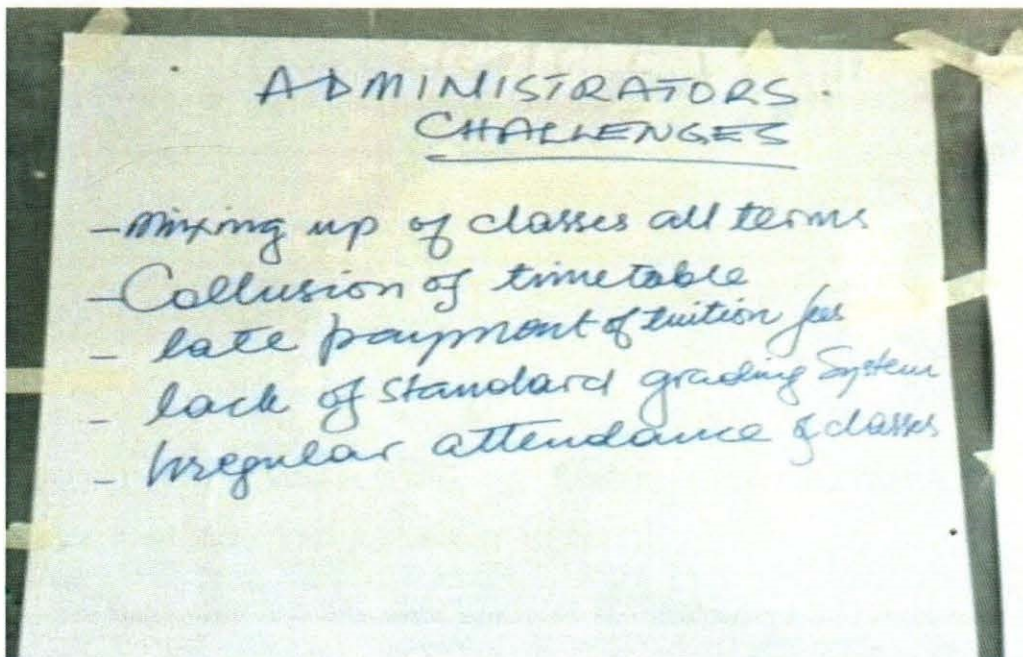 ADMINISTRATORS
CHALLENGES
- Mixing up of classes all terms
- Collusion of timetable
- late payment of tuition fees
- lack of standard grading System
- Irregular attendance of classes